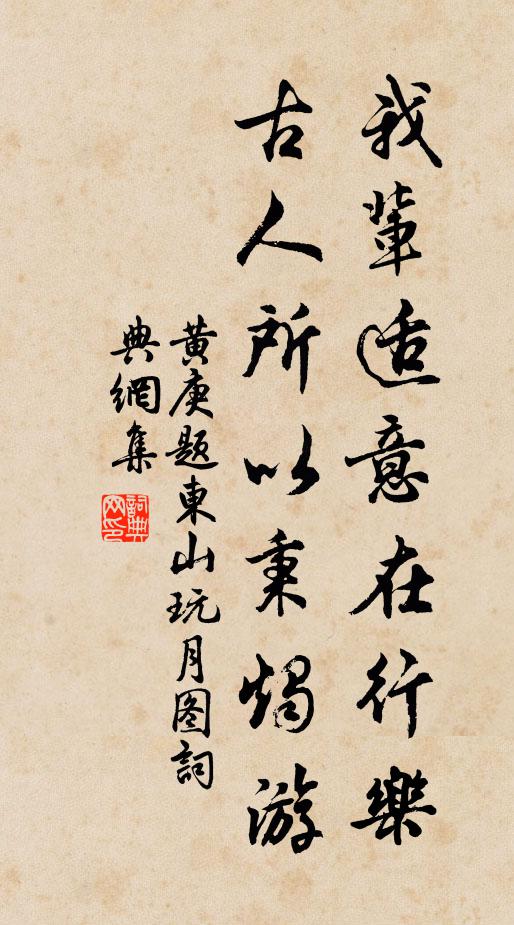 我輩适意在行樂
古人所以秉燭游
黄庚题東山玩月图詞
典網集
詞典
网印